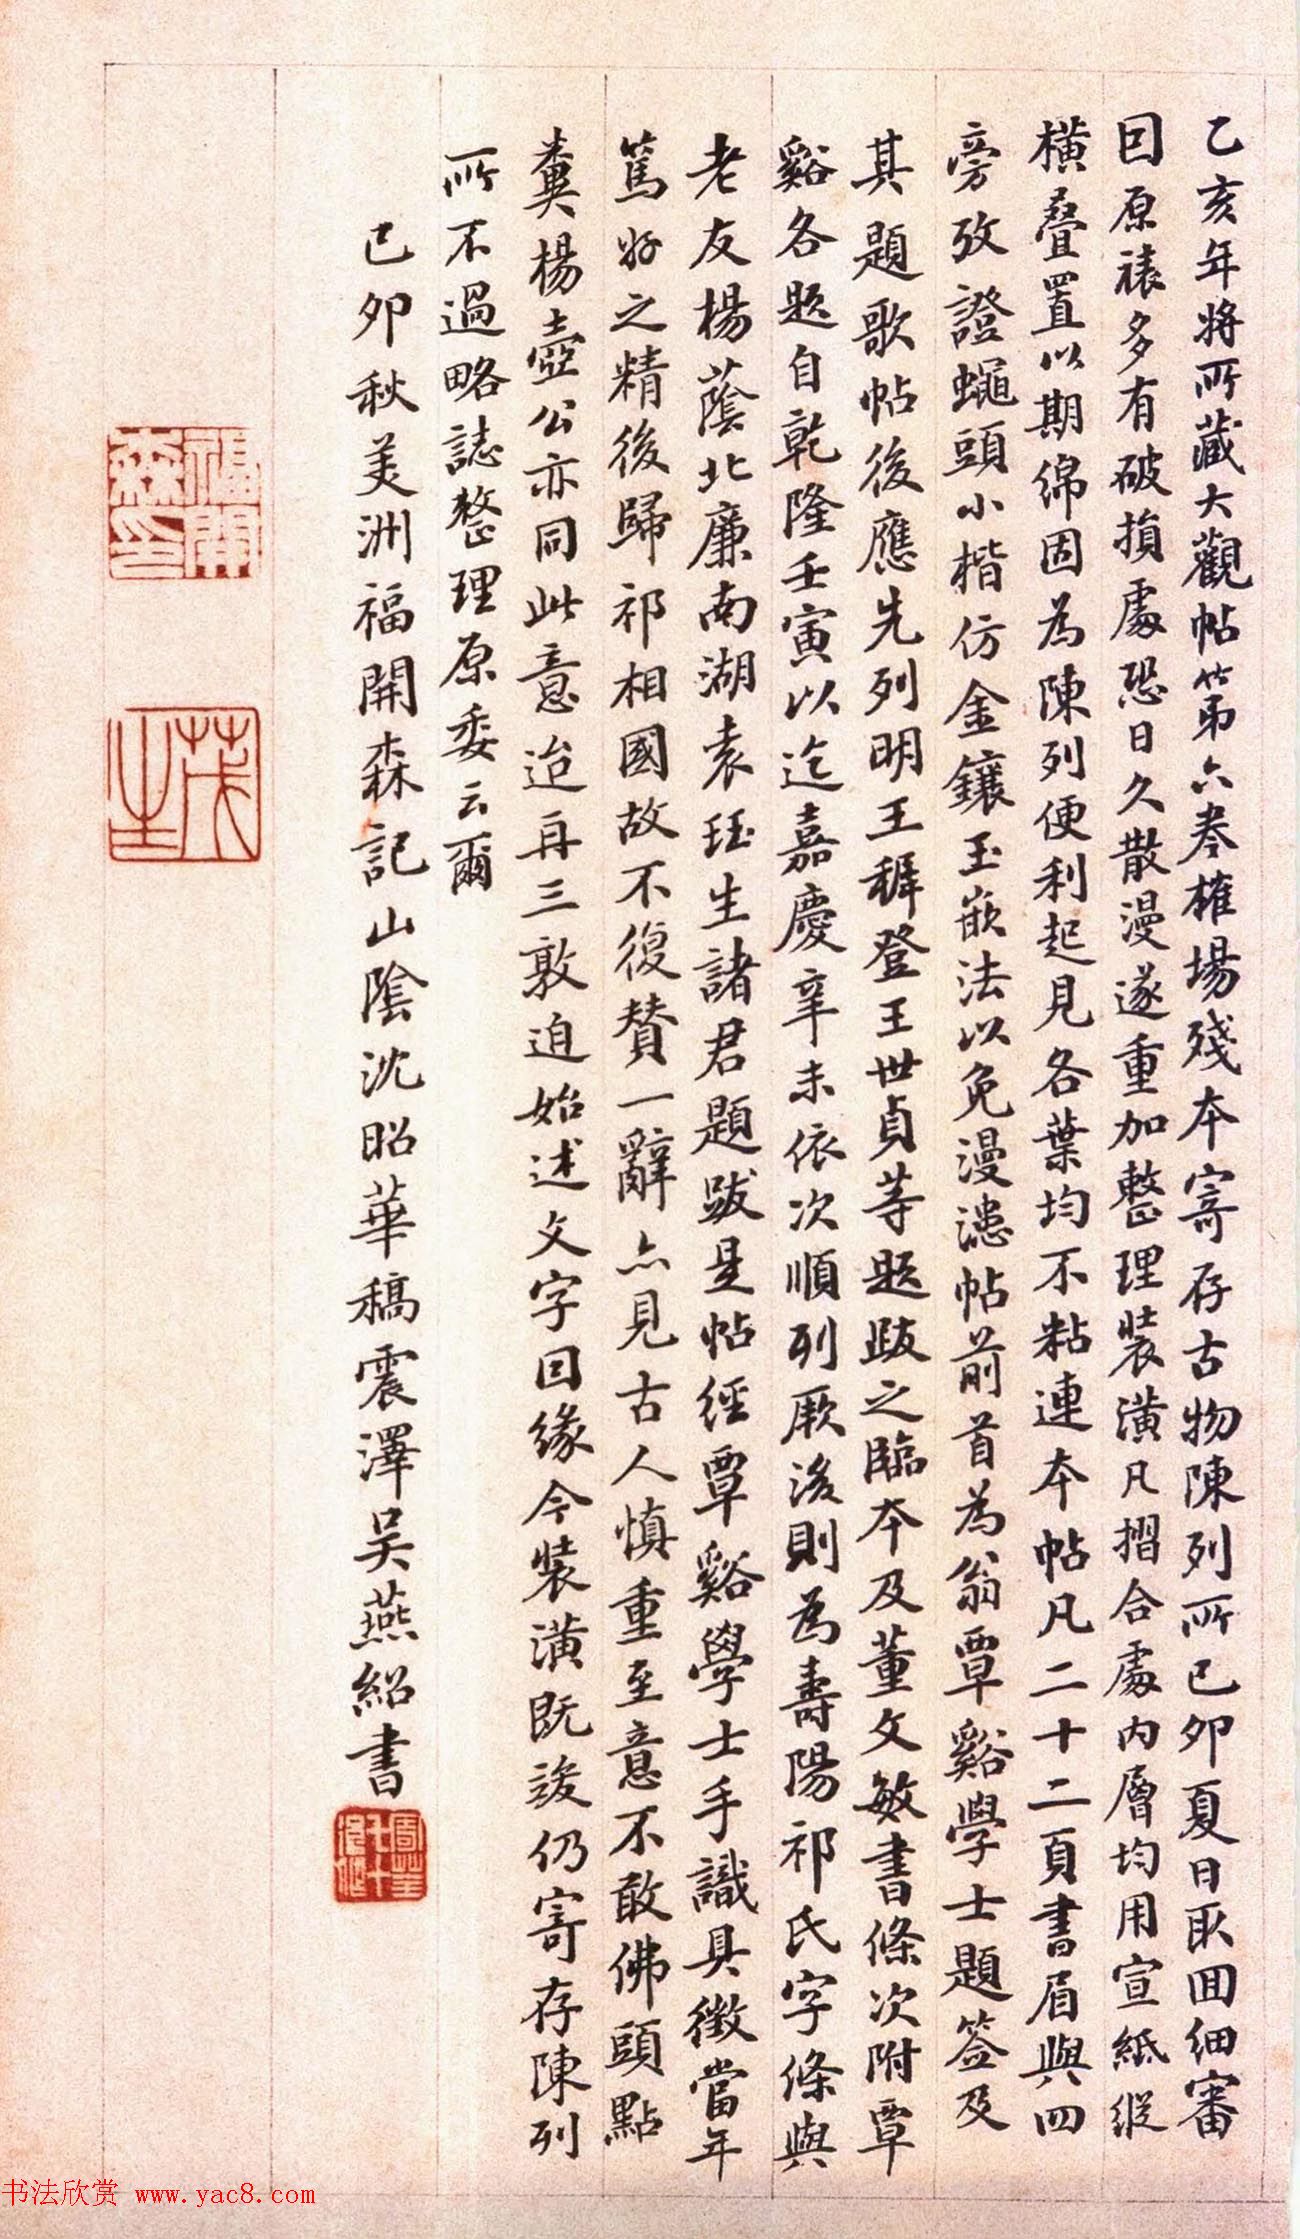 乙亥年將所藏大觀帖第六卷榷場殘本寄存古物陳列所己卯夏日取回細審
因原裱多有破損處恐日久散漫遂重加整理裝潢凡摺合處內層均用宣紙縱
橫疊置以期綿固為陳列便利起見各葉均不粘連本帖凡二十二頁書眉與四
旁攷證蠅頭小楷仿金鑲玉嵌法以免漫漶帖前首為翁覃谿學士題簽及
其題歌帖後應先列明王穉登王世貞等題跋之臨本及董文敏書條次附覃
谿各題自乾隆壬寅以迄嘉慶辛未依次順列厥後則為壽陽祁氏字條與
老友楊蔭北廉南湖袁珏生諸君題跋是帖經覃谿學士手識具徵當年
篤好之精後歸祁相國故不復贊一辭亦見古人慎重至意不敢佛頭點
糞楊壺公亦同此意迨再三敦迫始述文字因緣今裝潢既竣仍寄存陳列
所不過略誌整理原委云爾
己卯秋美洲福開森記山陰沈昭華稿震澤吳燕紹書
福開森印
茂生
书法欣赏 www.yac8.com